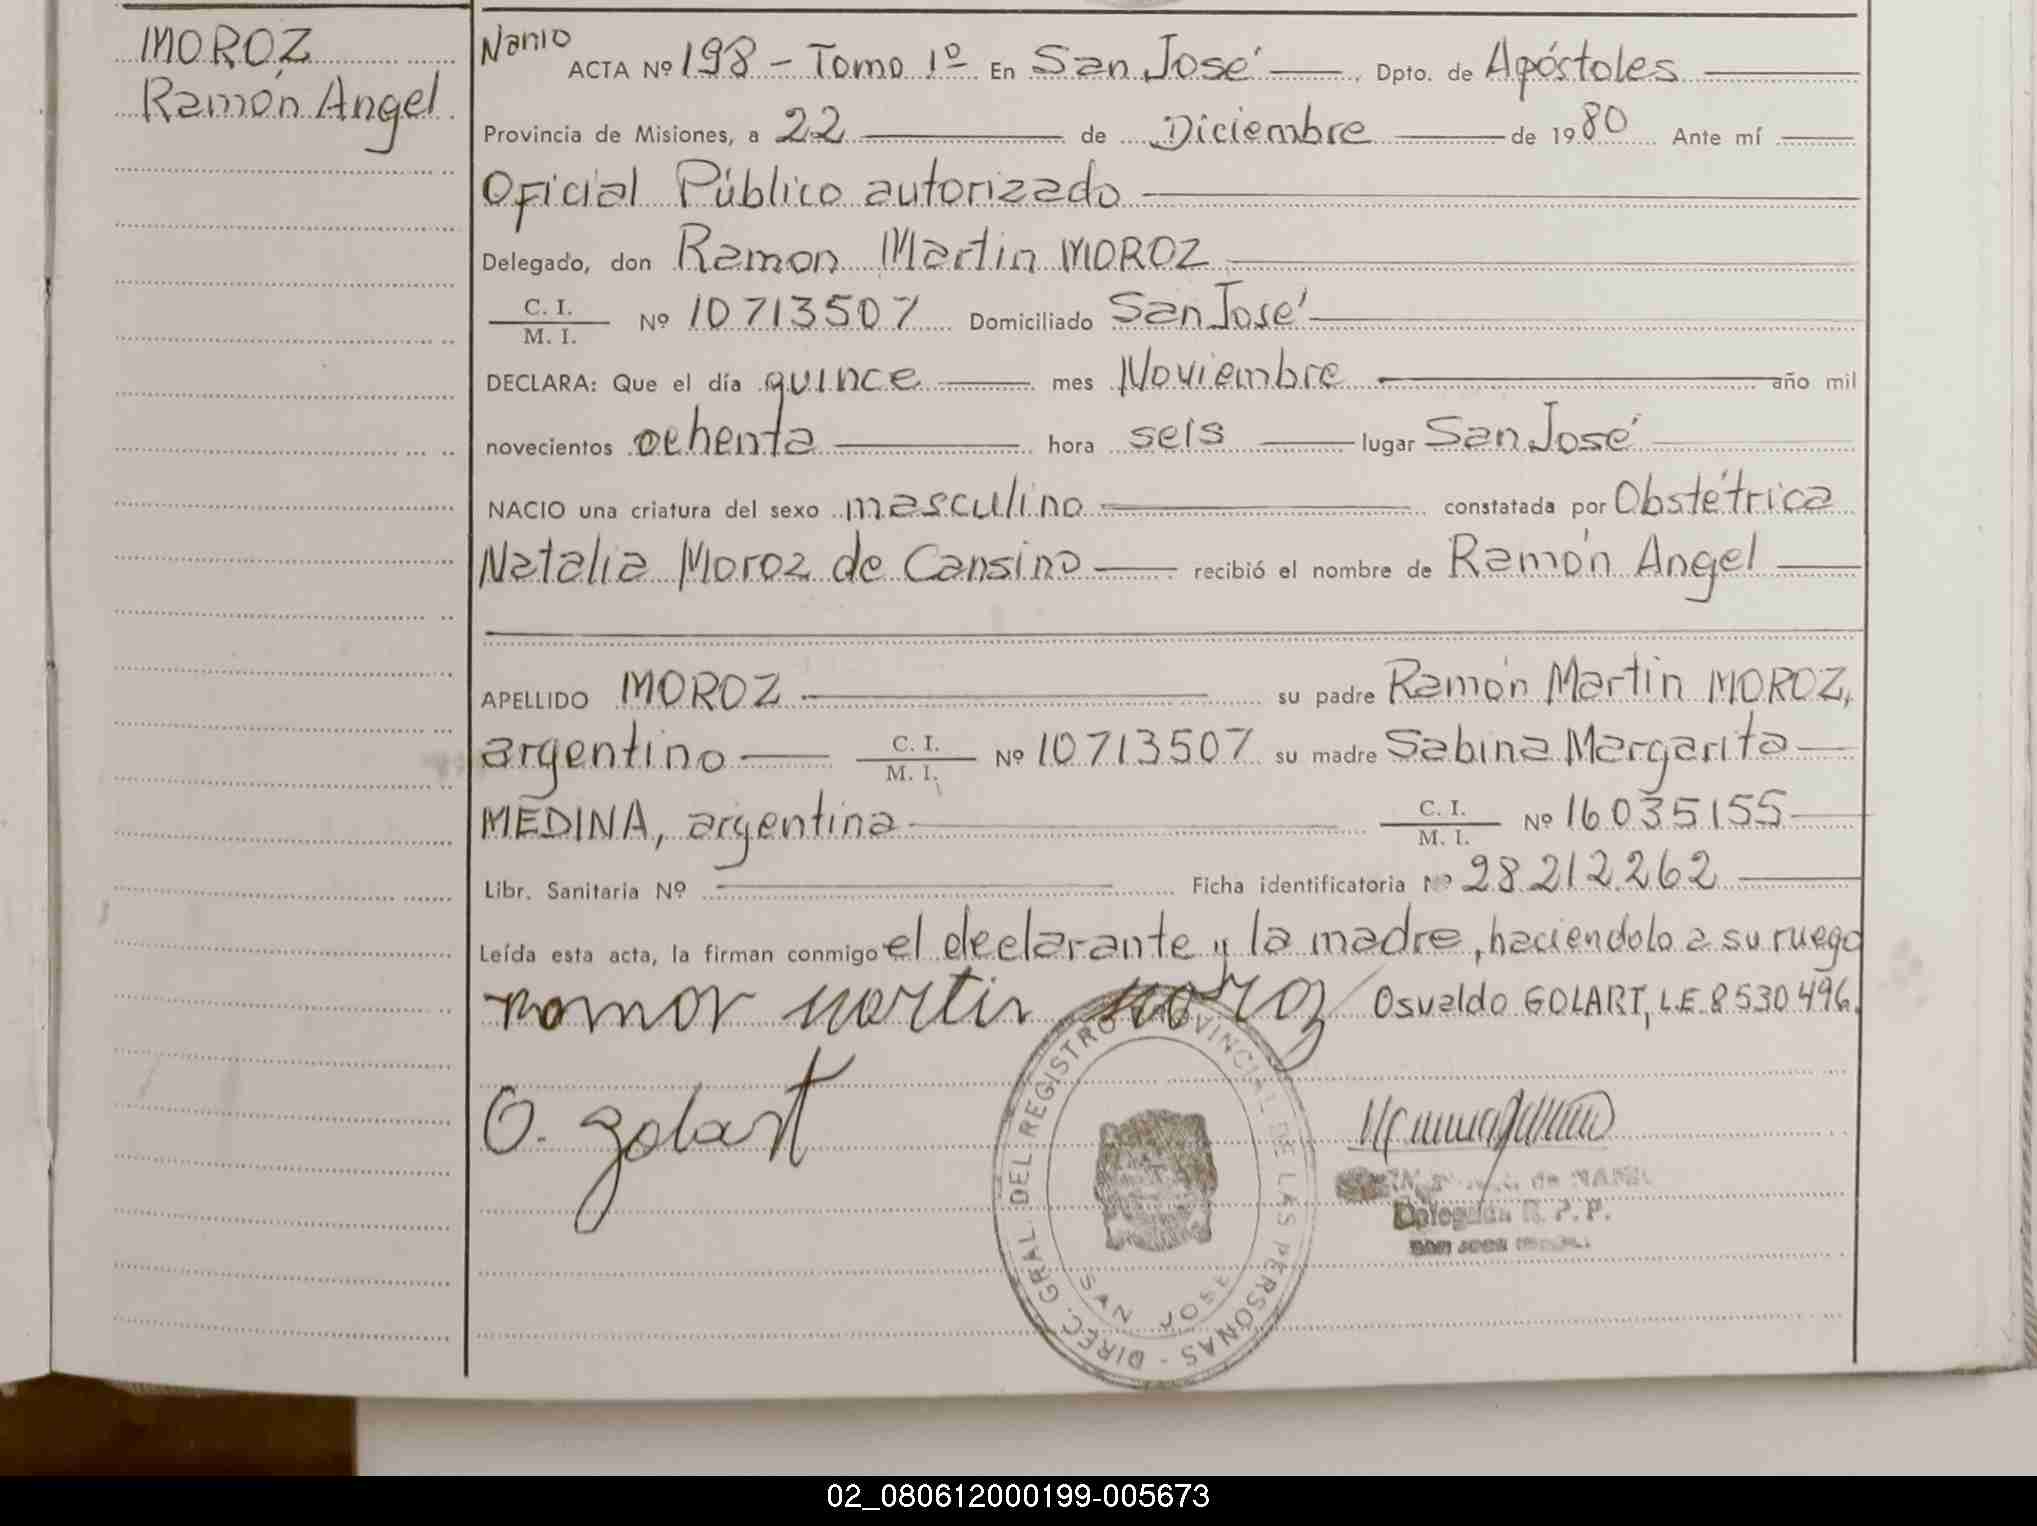 MOROZ
Ramón Angel
Nario
ACTA Nº 198 - Tomo 1º En San José, Dpto. de Apóstoles
Provincia de Misiones, a 22 de Diciembre de 1980 Ante mí
Oficial Público autorizado
Delegado, don Ramon Martin MOROZ
C. I.
M. I. Nº 10713507 Domiciliado San José
DECLARA: Que el día quince mes Noviembre año mil
novecientos ochenta hora seis lugar San José
NACIO una criatura del sexo masculino constatada por Obstétrica
Natalia Moroz de Cansino recibió el nombre de Ramón Angel
APELLIDO MOROZ su padre Ramón Martin MOROZ,
argentino C. I.
M. I. Nº 10713507 su madre Sabina Margarita
MEDINA, argentina C. I.
M. I. Nº 16035155
Libr. Sanitaria Nº Ficha identificatoria Nº 28212262
Leída esta acta, la firman conmigo el declarante y la madre, haciendolo a su ruego
ramon martin moroz Osvaldo GOLART, L.E. 8530496.
O. golart
DIREC. GRAL. DEL REGISTRO PROVINCIAL DE LAS PERSONAS -
SAN JOSE
Delegada R. P. P.
02_080612000199-005673